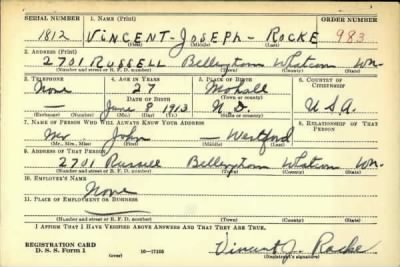 SERIAL NUMBER 1. NAME (Print) ORDER NUMBER
1812 VINCENT - JOSEPH - ROCKE 983
(First) (Middle) (Last)
2. ADDRESS (Print)
2701 RUSSELL Bellingham Whatcom Wn-
(Number and street or R. F. D. number) (Town) (County) (State)
3. TELEPHONE 4. AGE IN YEARS 5. PLACE OF BIRTH 6. COUNTRY OF CITIZENSHIP
None 27 Mohall
DATE OF BIRTH (Town or county)
— June 8 1913 N.D. USA.
(Exchange) (Number) (Mo.) (Day) (Yr.) (State or country)
7. NAME OF PERSON WHO WILL ALWAYS KNOW YOUR ADDRESS 8. RELATIONSHIP OF THAT PERSON
Mr John — Westford —
(Mr., Mrs., Miss) (First) (Middle) (Last)
9. ADDRESS OF THAT PERSON
2701 Russell Bellingham Whatcom Wn-
(Number and street or R. F. D. number) (Town) (County) (State)
10. EMPLOYER'S NAME
None
11. PLACE OF EMPLOYMENT OR BUSINESS
—
(Number and street or R. F. D. number) (Town) (County) (State)
I AFFIRM THAT I HAVE VERIFIED ABOVE ANSWERS AND THAT THEY ARE TRUE.
REGISTRATION CARD
D. S. S. Form 1 (over) 16—17105 Vincent J. Rocke
(Registrant's signature)